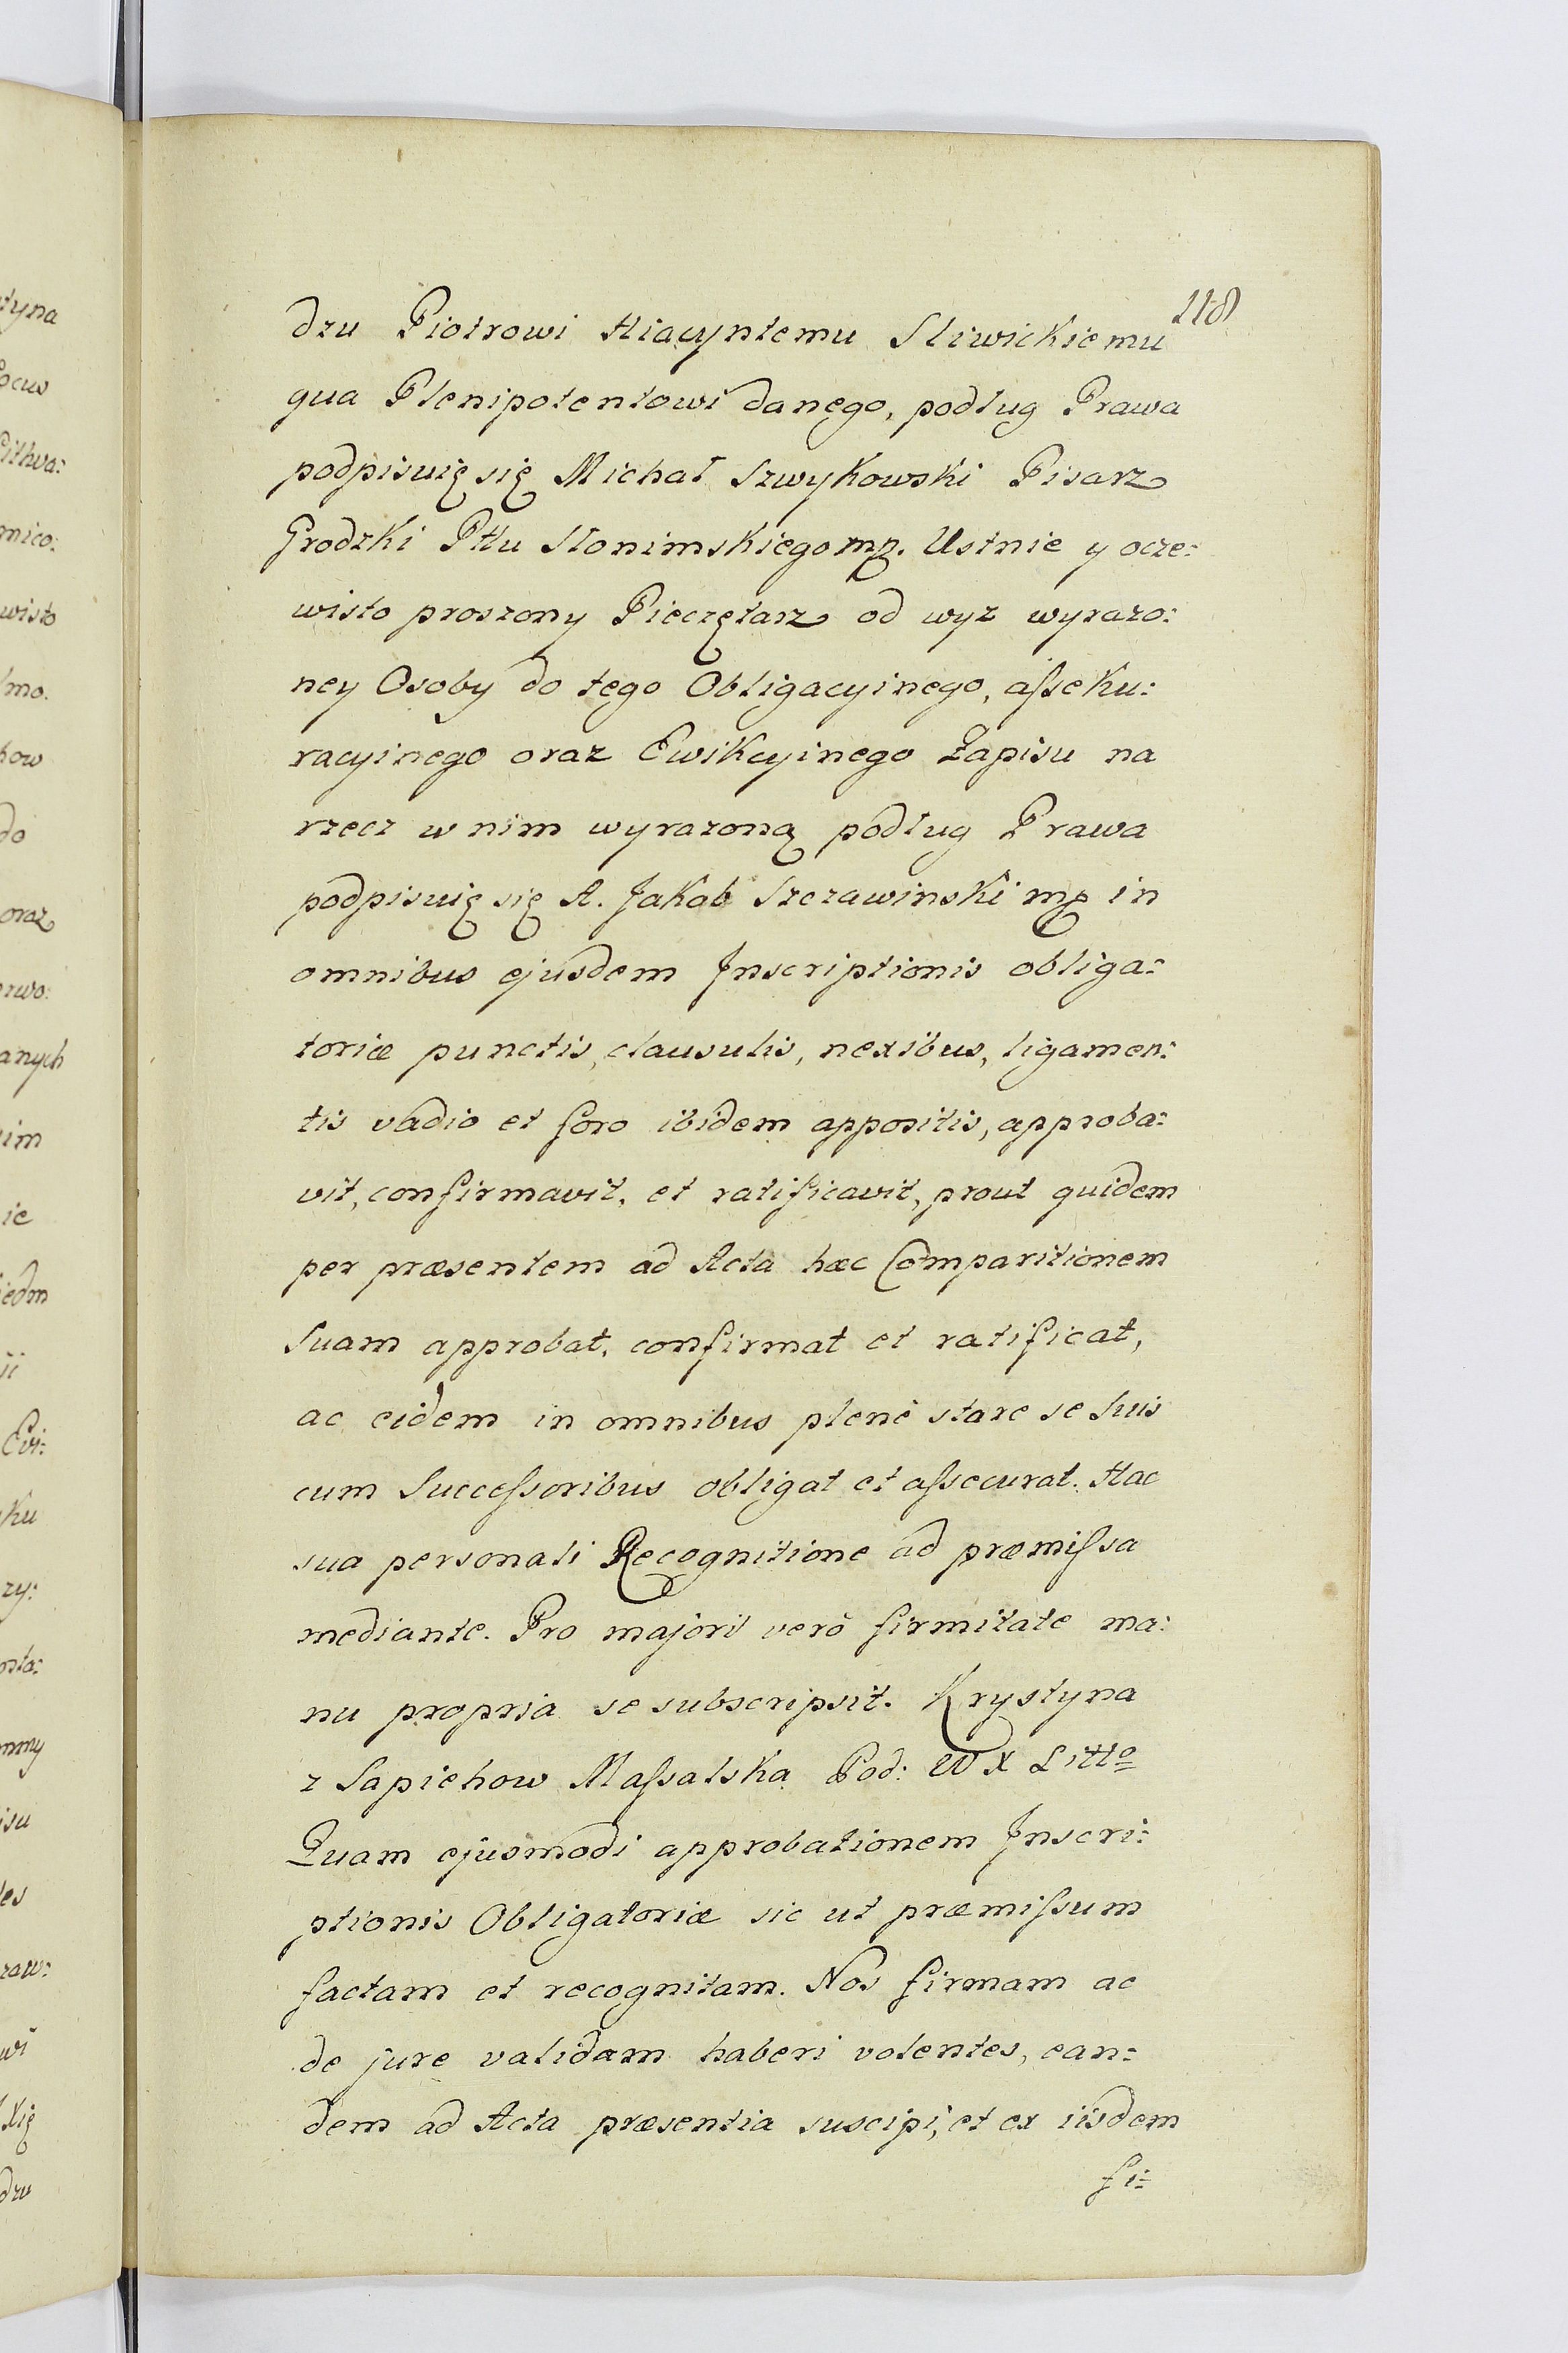 118
dzu Piotrowi Hiacyntemu Sliwickiemu
qua Plenipotentowi danego, podług Prawa
podpisuię się Michał Szwykowski Pisarz
Grodzki Pttu Słonimskiego mp. Ustnie y ocze:
wisto proszony Pieczętarz od wyz wyrazo:
ney Osoby do tego Obligacyinego, aſseku:
racyinego oraz Ewikcyinego Zapisu na
rzecz w nim wyrazoną podług Prawa
podpisuię się A. Jakob Szczawinski mp in
omnibus ejusdem Inscriptionis obliga:
toriæ punctis, clausulis, nexibus, ligamen:
tis vadio et foro ibidem appositis, approba:
vit, confirmavit, et ratificavit, prout quidem
per præsentem ad Acta hæc Comparitionem
Suam approbat, confirmat et ratificat,
ac eidem in omnibus plenè stare se Suis
cum Succeſsoribus obligat et aſsecurat. Hac
sua personali Recognitione ad præmiſsa
mediante. Pro majori verò firmitate ma:
nu propria se subscripsit. Krystyna
z Sapiehow Maſsalska Pod: W X Litto
Quam ejusmodi approbationem Inscri:
ptionis Obligatoriæ sic ut præmiſsum
factam et recognitam. Nos firmam ac
de jure validam haberi volentes, ean:
dem ad Acta præsentia suscipi, et ex iisdem
fi:
tyna
Pithva:
mico:
wisto
do
oraz
anych
im
ie
Evi:
ku
zy:
isu
zaw:
wi
dzu